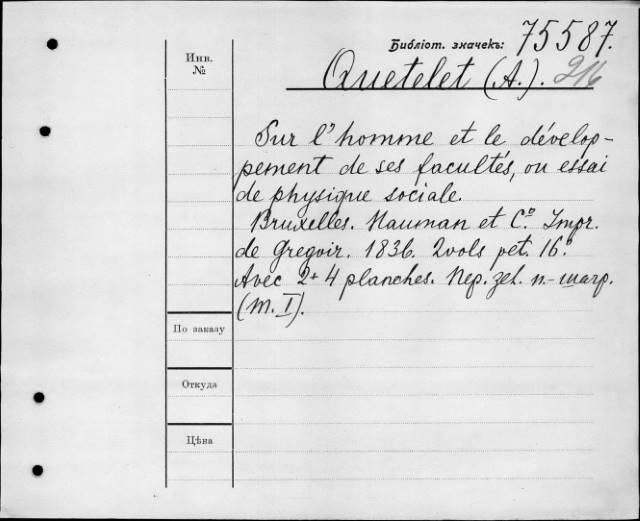 Библіот. значекъ: 75587.
Инв.
№
Quetelet (A.).
Sur l'homme et le dévelop-
pement de ses facultés, ou essai
de physique sociale.
Bruxelles. Hauman et Cº. Impr.
de Gregoir. 1836. 2 vols pet. 16º.
Avec 2+4 planches. Пер. зел. п.-шагр.
(Т. I).
По заказу
Откуда
Цѣна